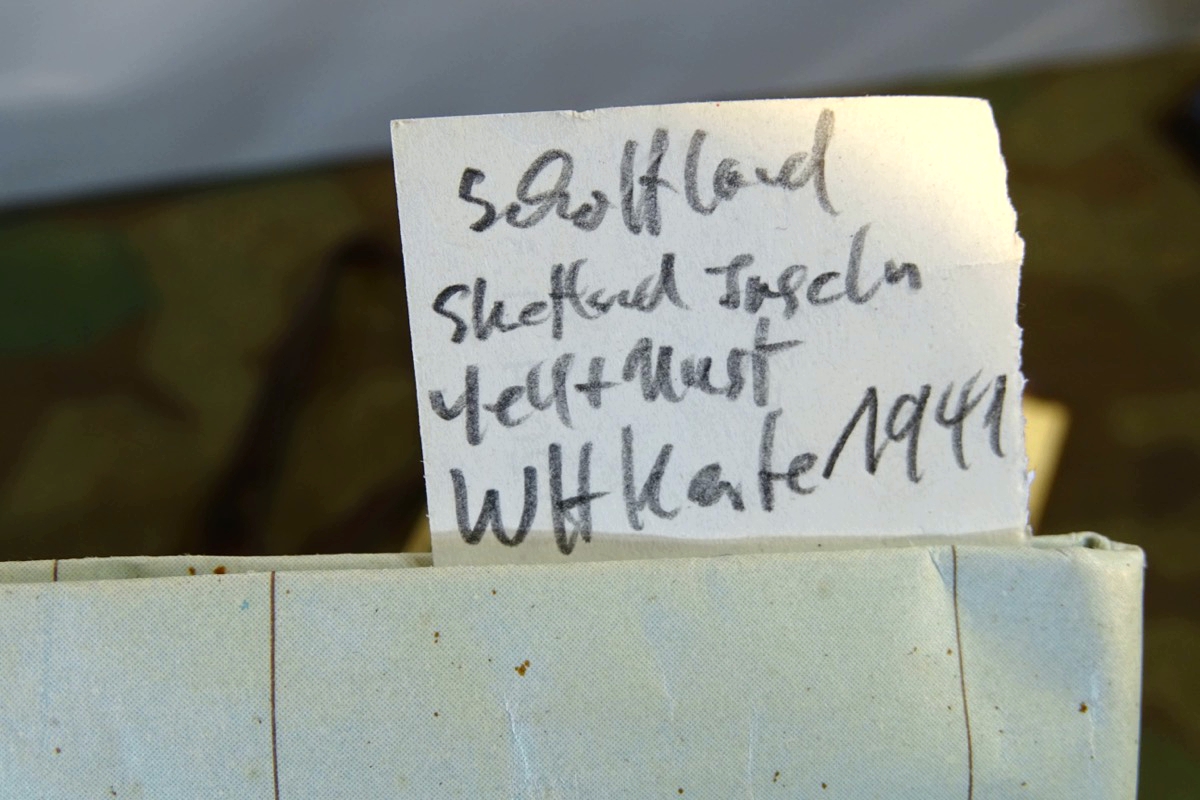 Schottland
Shetland Inseln
Yell + Unst
WH Karte 1941